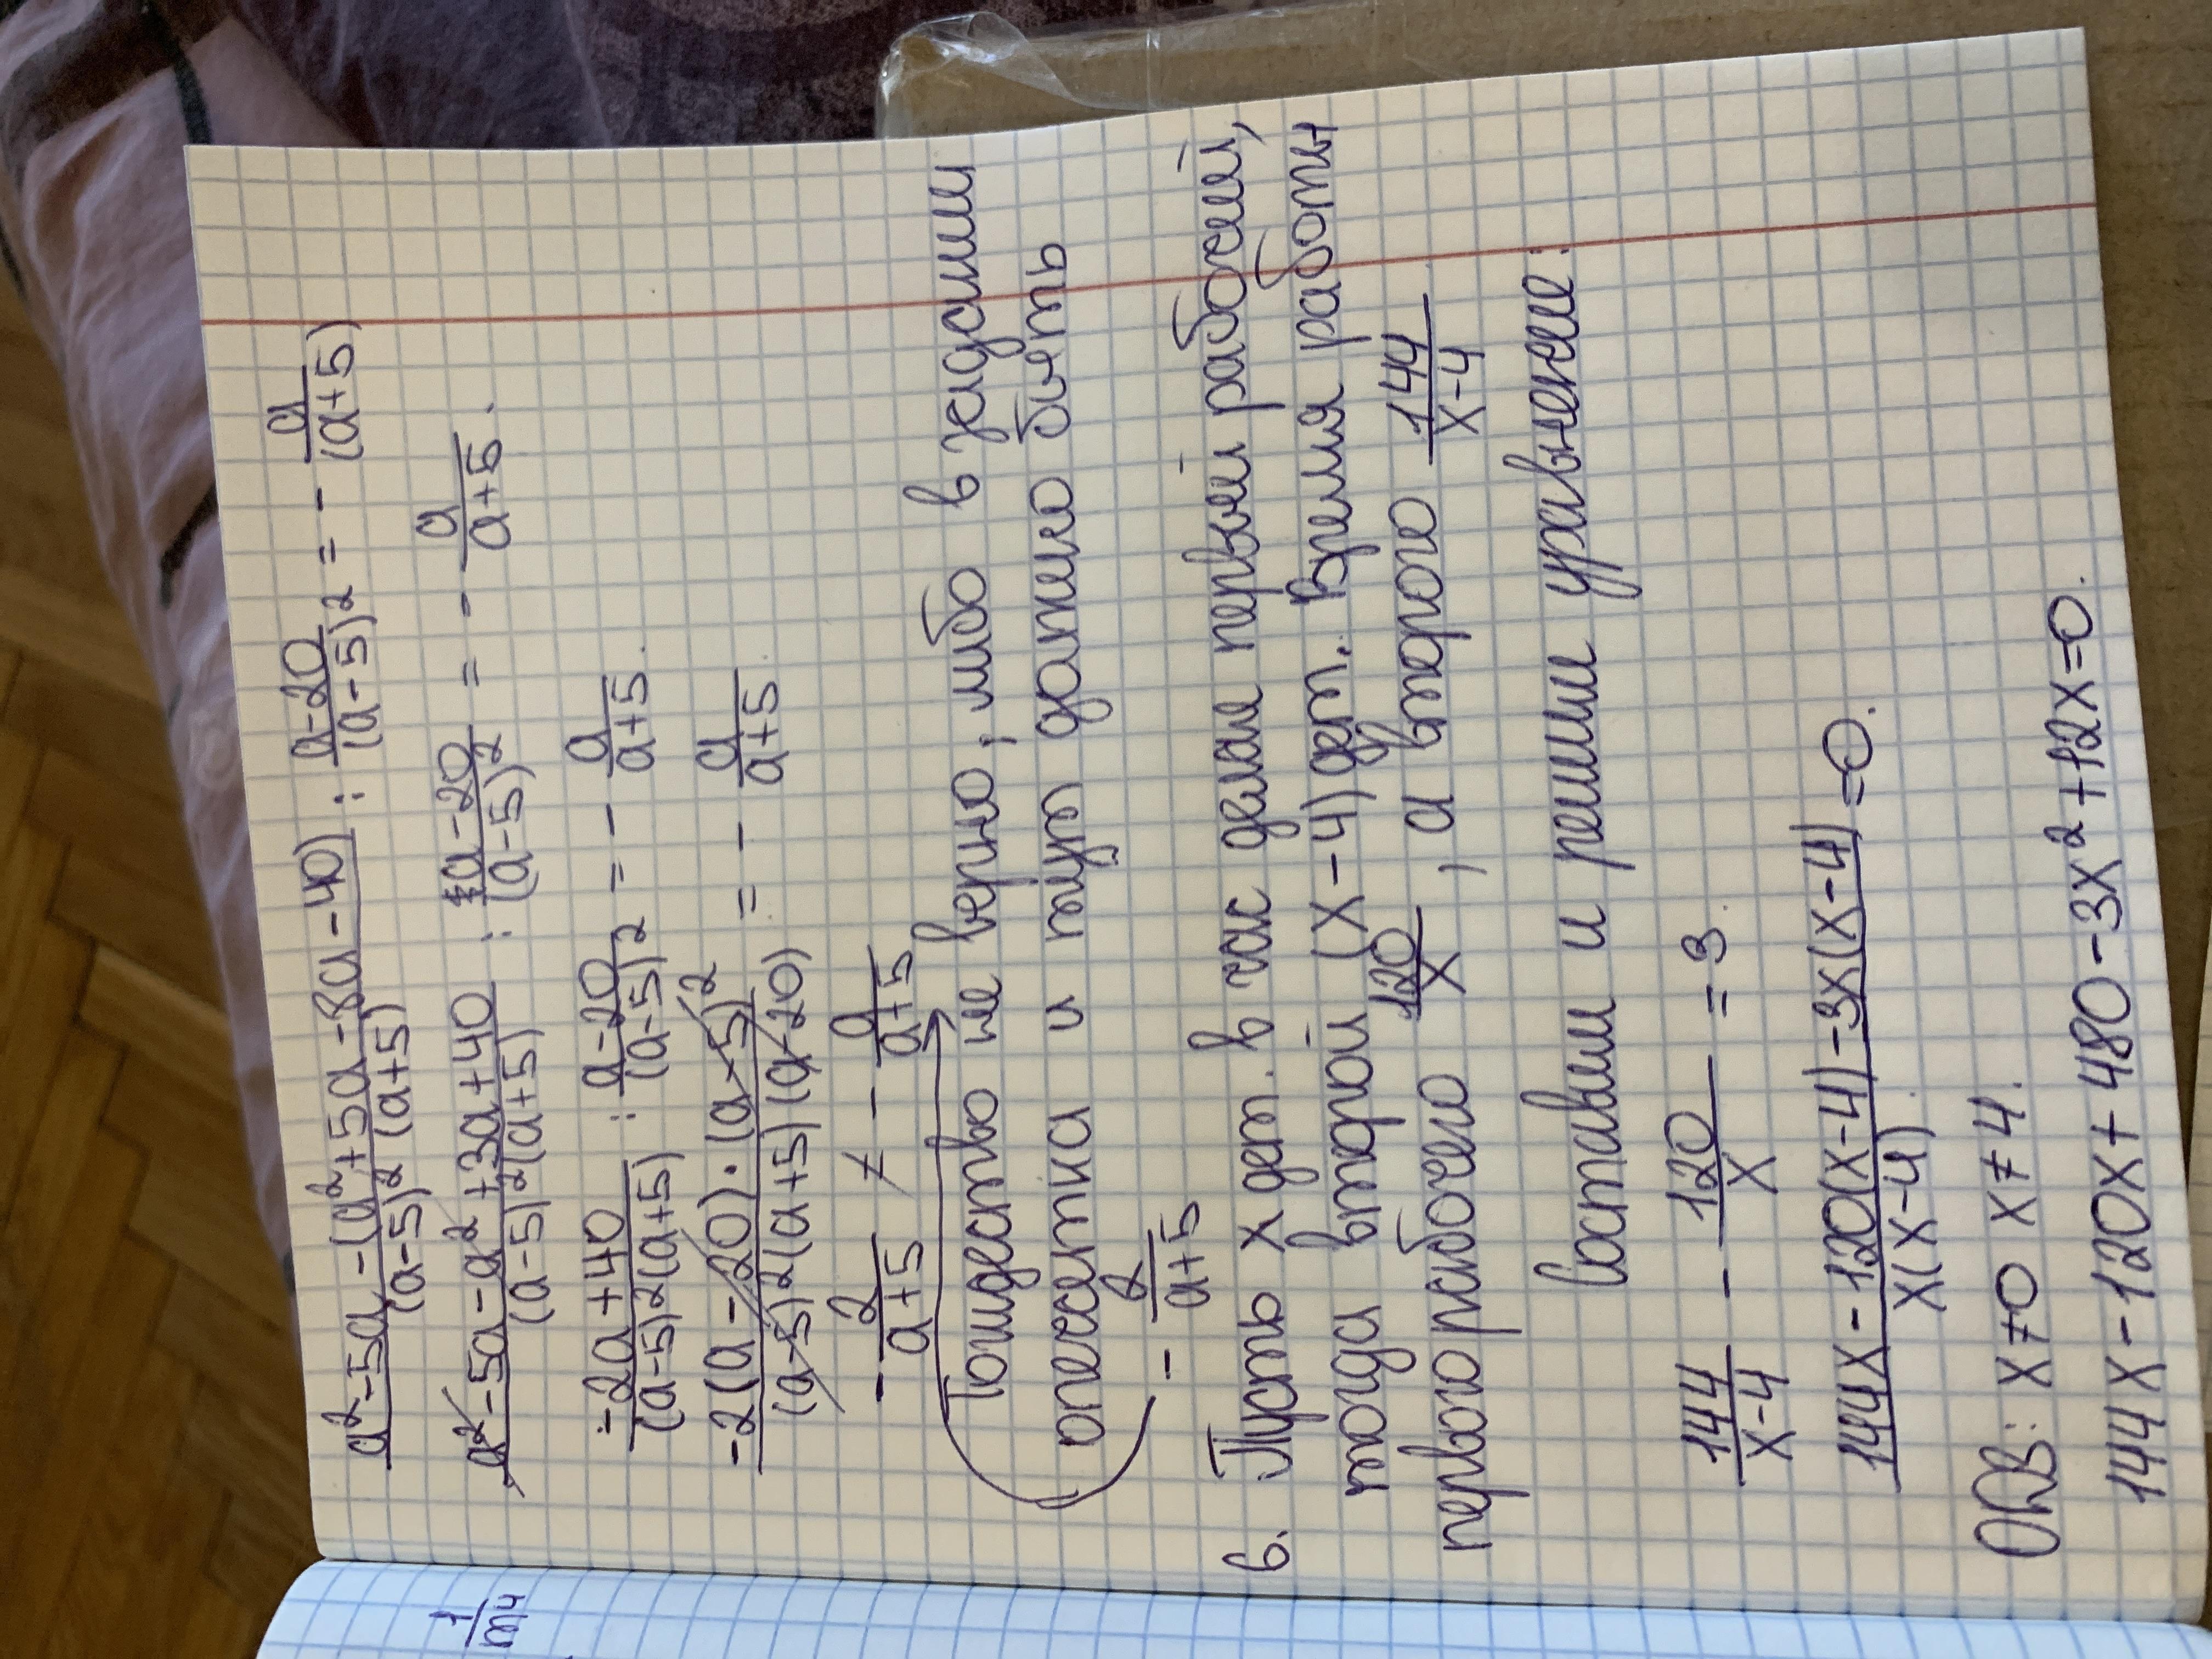 (a²-5a-(a²+5a-8a-40))/((a-5)²(a+5)) : (a-20)/(a-5)² = - a/(a+5)
(a²-5a-a²+3a+40)/((a-5)²(a+5)) : (a-20)/(a-5)² = - a/(a+5).
(-2a+40)/((a-5)²(a+5)) : (a-20)/(a-5)² = - a/(a+5).
(-2(a-20)·(a-5)²)/((a-5)²(a+5)(a-20)) = - a/(a+5).
- 2/(a+5) ≠ - a/(a+5)
Тождество не верно, либо в задании
опечатка и тут должно быть
- 2/(a+5)
6. Пусть x дет. в час делал первый рабочий,
тогда второй (x-4) дет. Время работы
первого рабочего 120/x, а второго 144/(x-4)
Составим и решим уравнение:
144/(x-4) - 120/x = 3.
(144x-120(x-4)-3x(x-4))/(x(x-4)) = 0.
ОДЗ: x≠0 x≠4.
144x-120x+480-3x²+12x=0.
1/m⁴